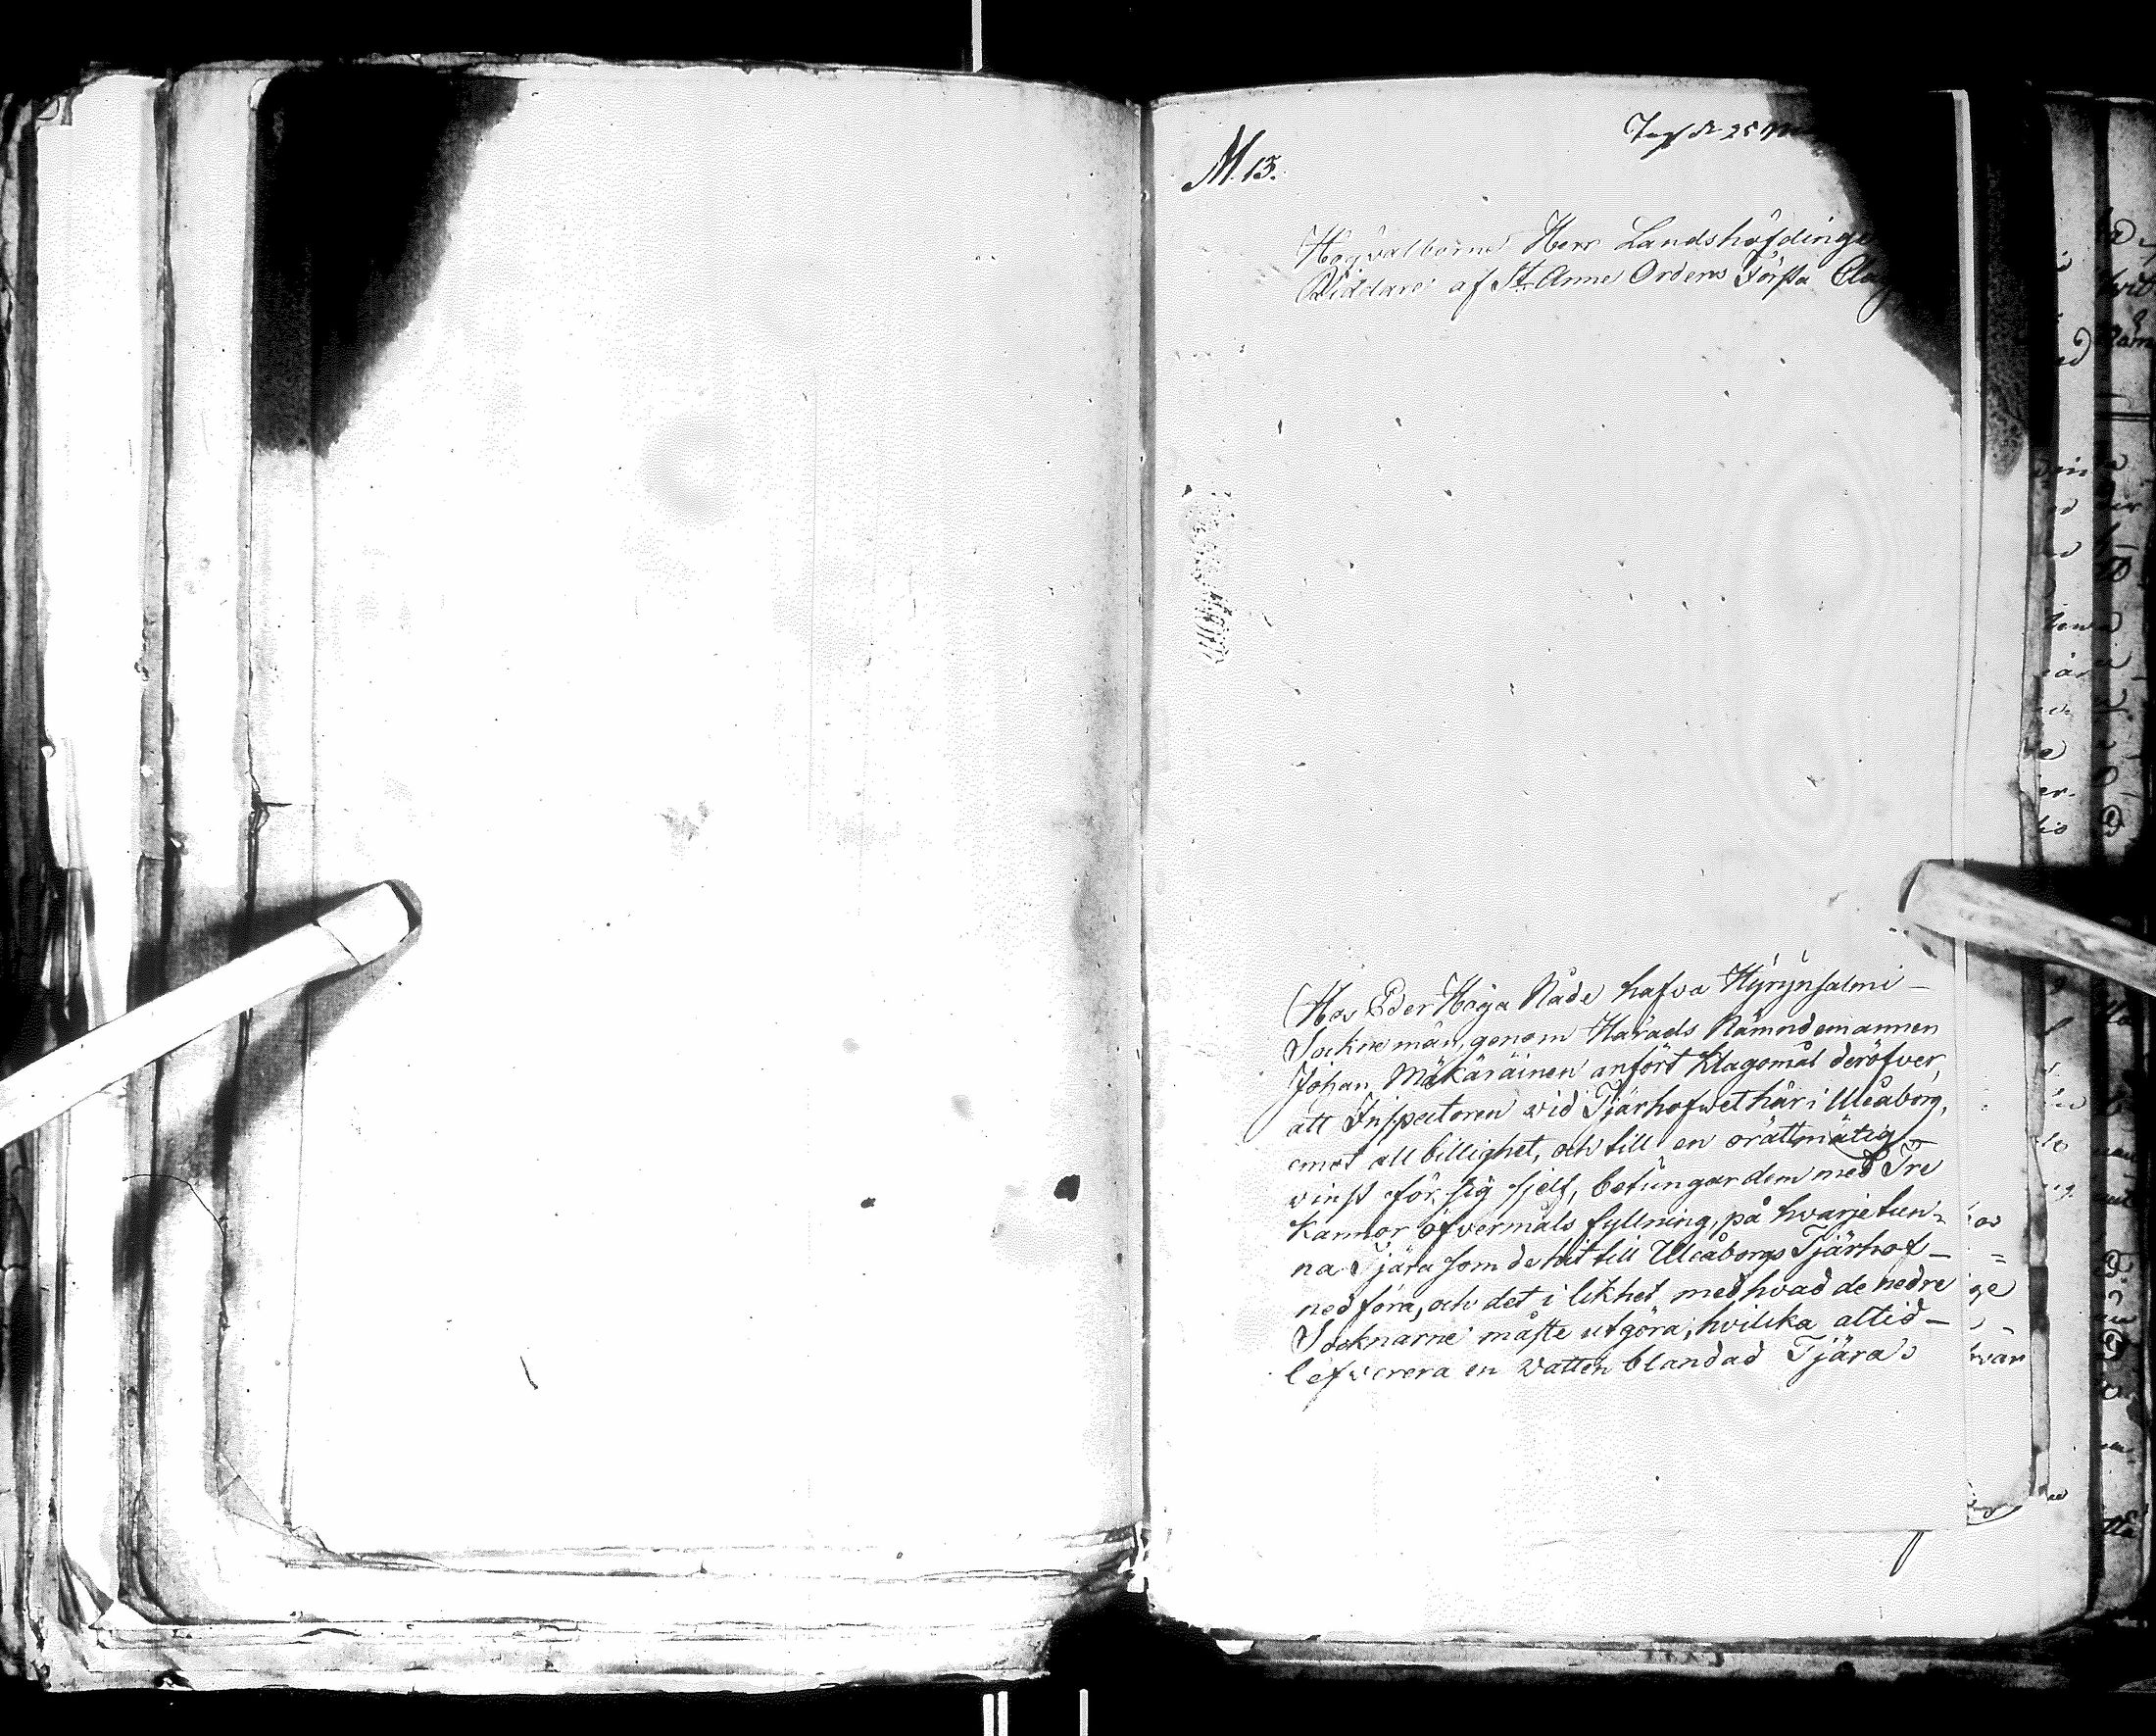 M. 13.
Högvälborne Herr Landshöfdinge
Riddare af St. Anne Ordens Första
Hos Eder Höga Nåde hafva Hyrynsalmi –
Socknemän, genom Härads Nämndemannen
Johan Mäkäräinen anfört Klagomål deröfver,
att Inspectoren vid Tjärhofwet här i Uleåborg,
emot all billighet, och till en orättmätig
vinst för sig sjelf, betungar dem med Tre
Kannor öfvermåls fyllning, på hvarje tun=
na Tjära som de hit till Uleåborgs Tjärhof –
nedföra, och det i likhet med hvad de nedre
Socknarne måste utgöra, hvilka altid –
lefverera en vatten blandad Tjära